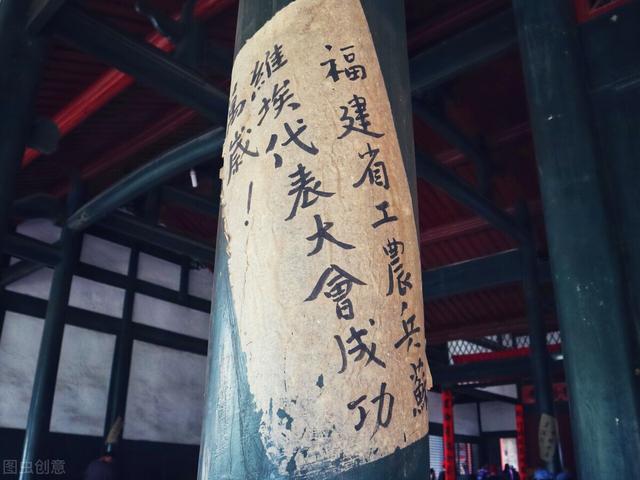 福建省工農兵蘇
維埃代表大會成功
萬歲！
图虫创意